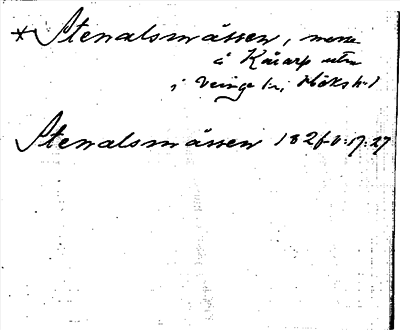 *Stenalsmåssen, mosse
å Kåarp utm
i Veinge sn, Höks hd
Stenalsmåssen 1826 0:17:27